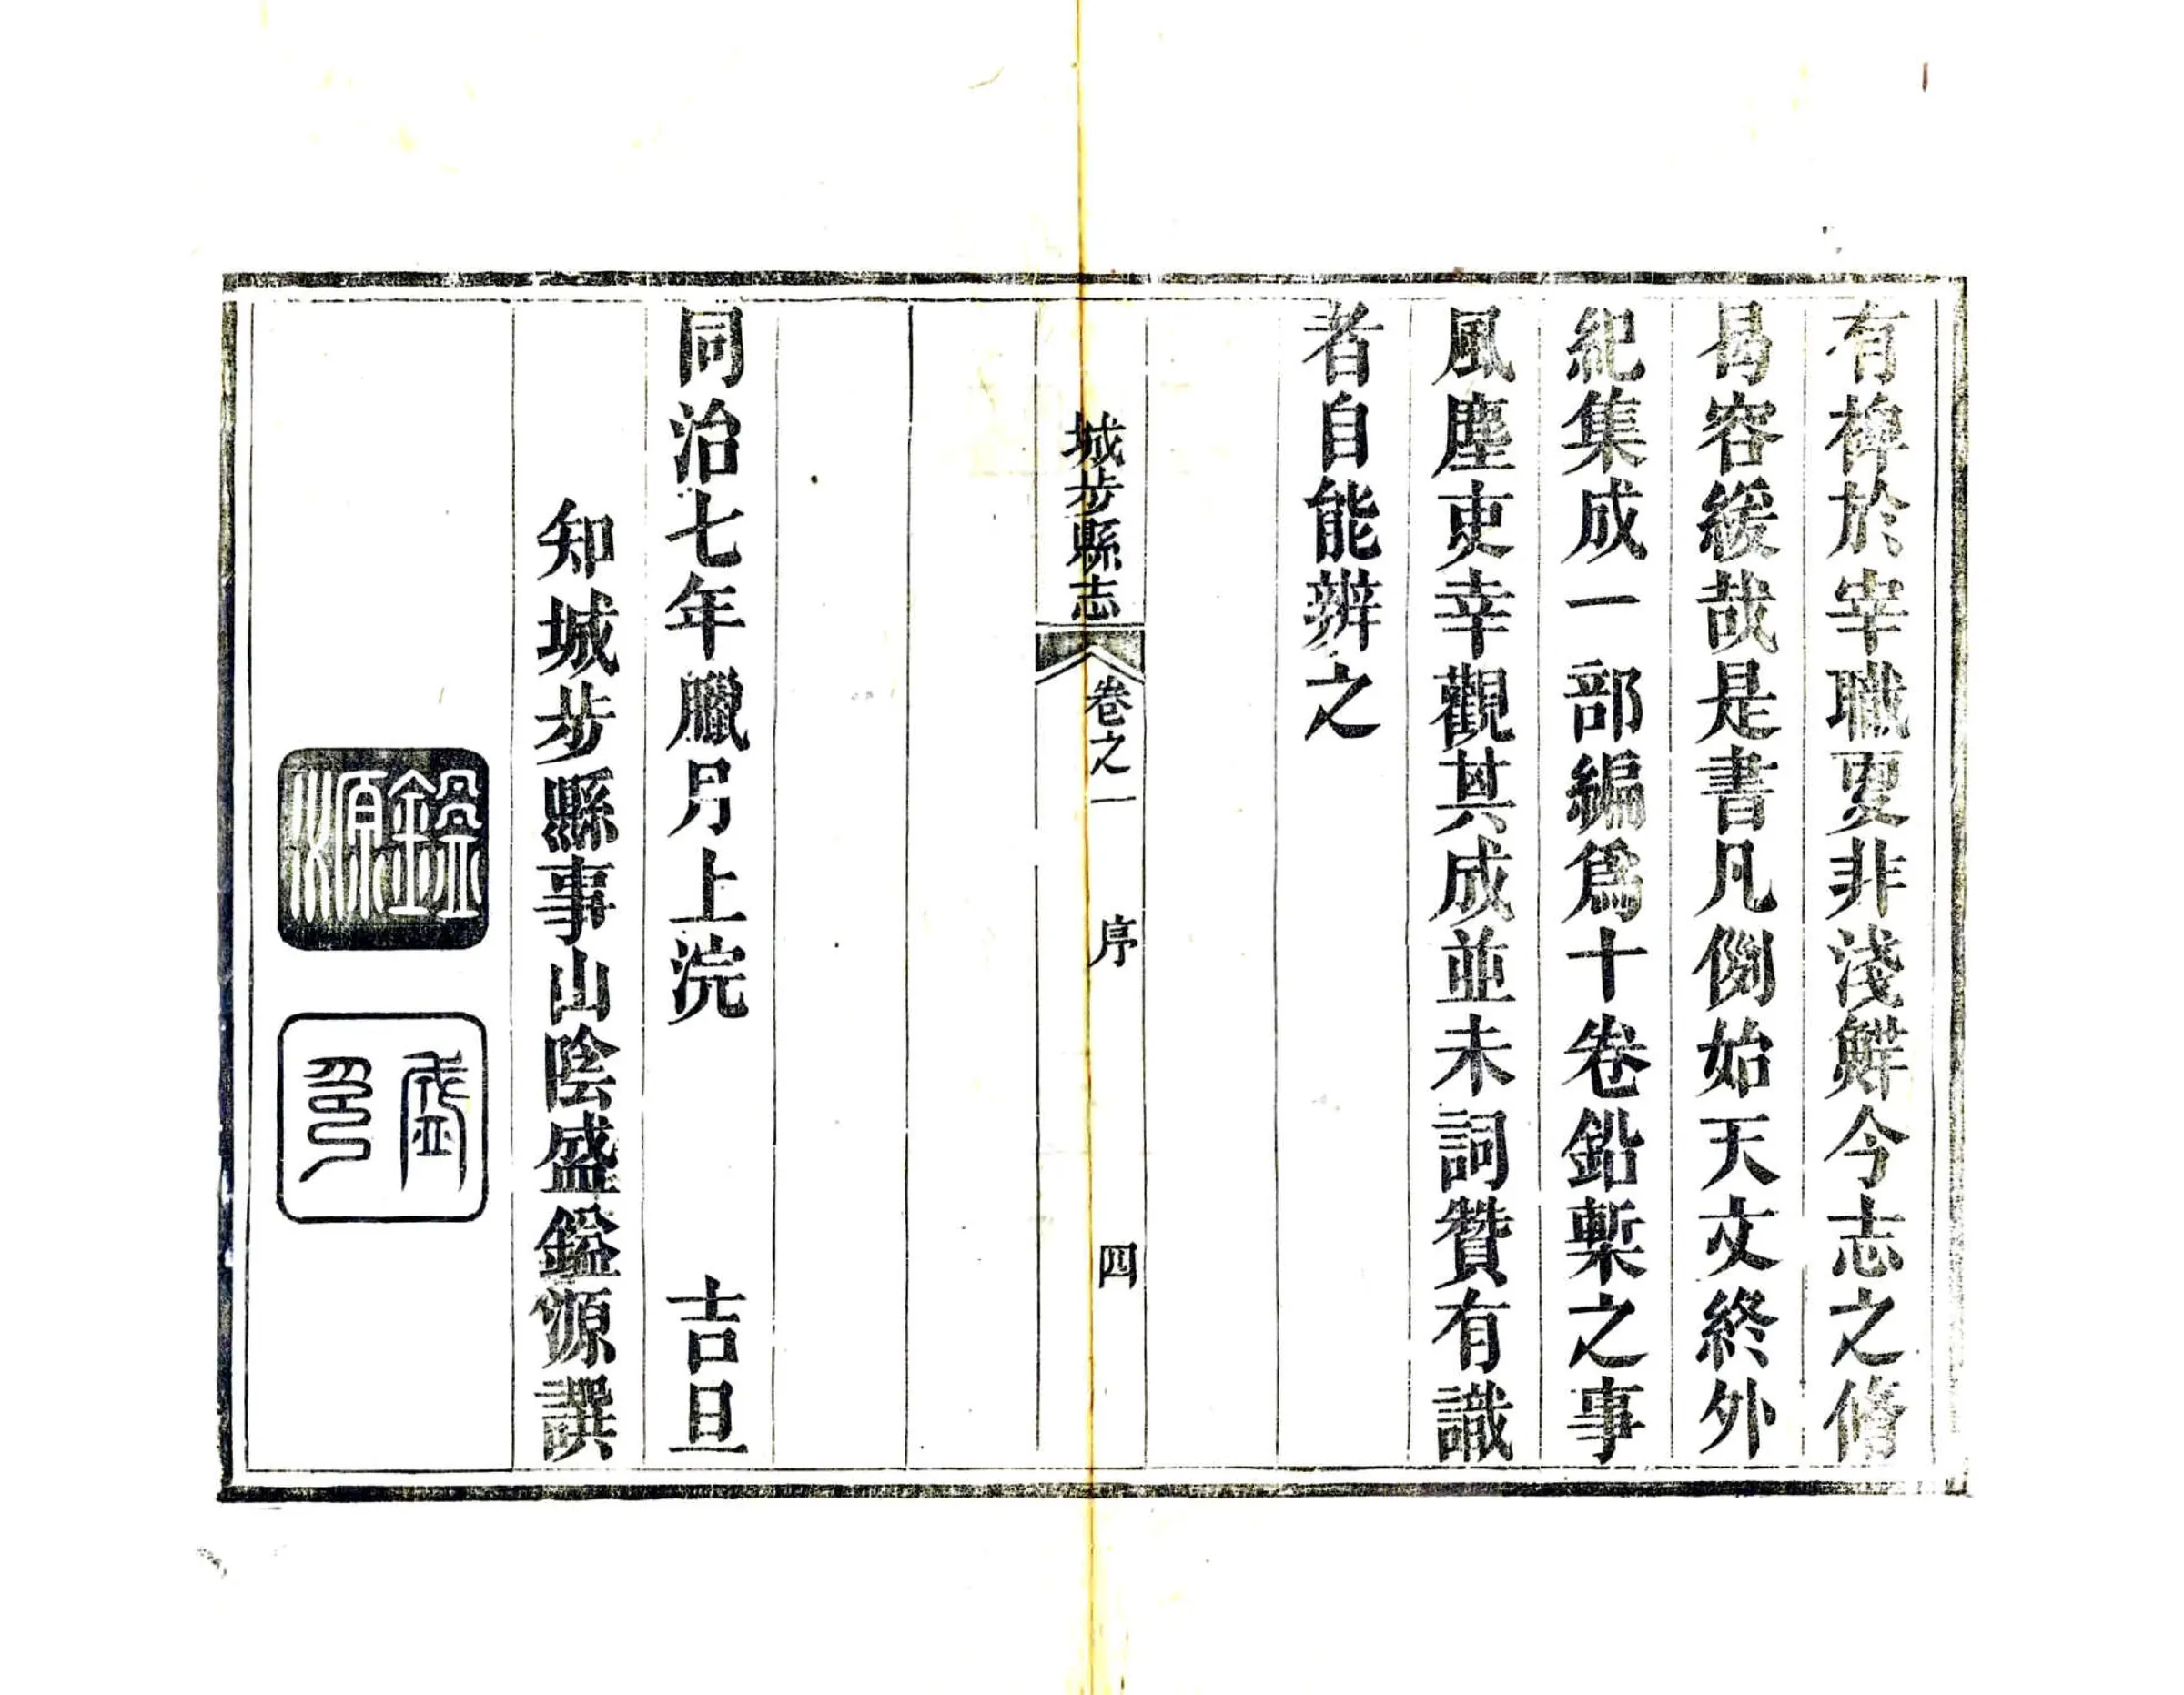 有裨於宰職更非淺鮮今志之脩
曷容緩哉是書凡例始天文終外
紀集成一部編爲十卷鉛槧之事
風塵吏幸觀其成並未詞贊有識
者自能辨之
城步縣志
卷之一
序
四
同治七年臘月上浣 吉旦
知城步縣事山陰盛鎰源譔
鎰源
盛印